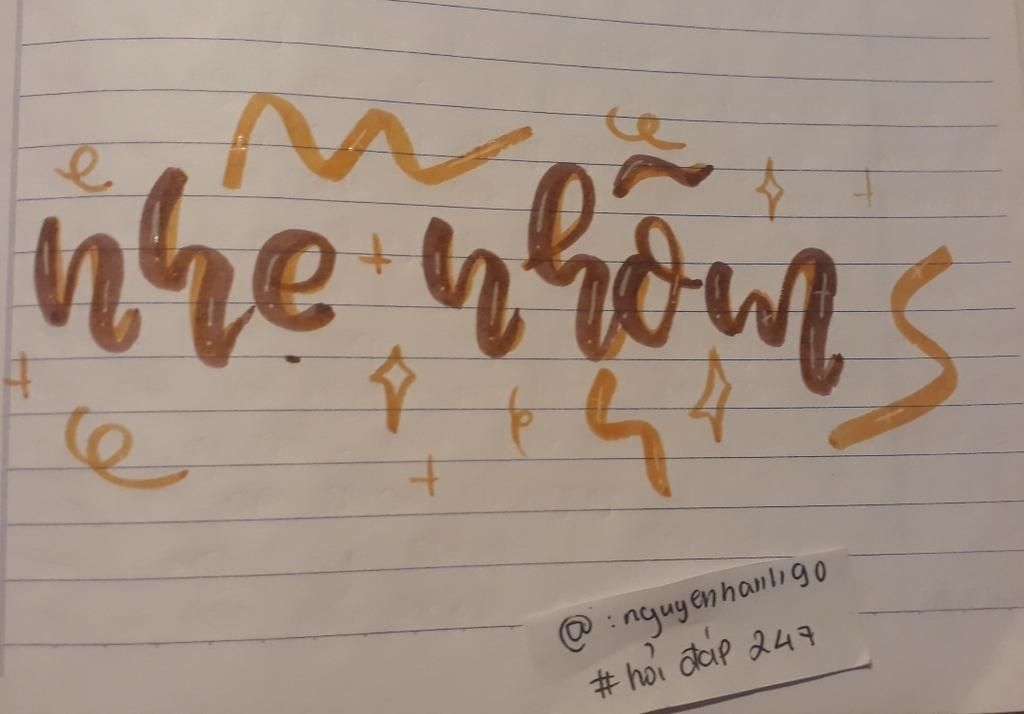 nhẹ nhõm
@:nguyenhanh90
#hỏi đáp 247